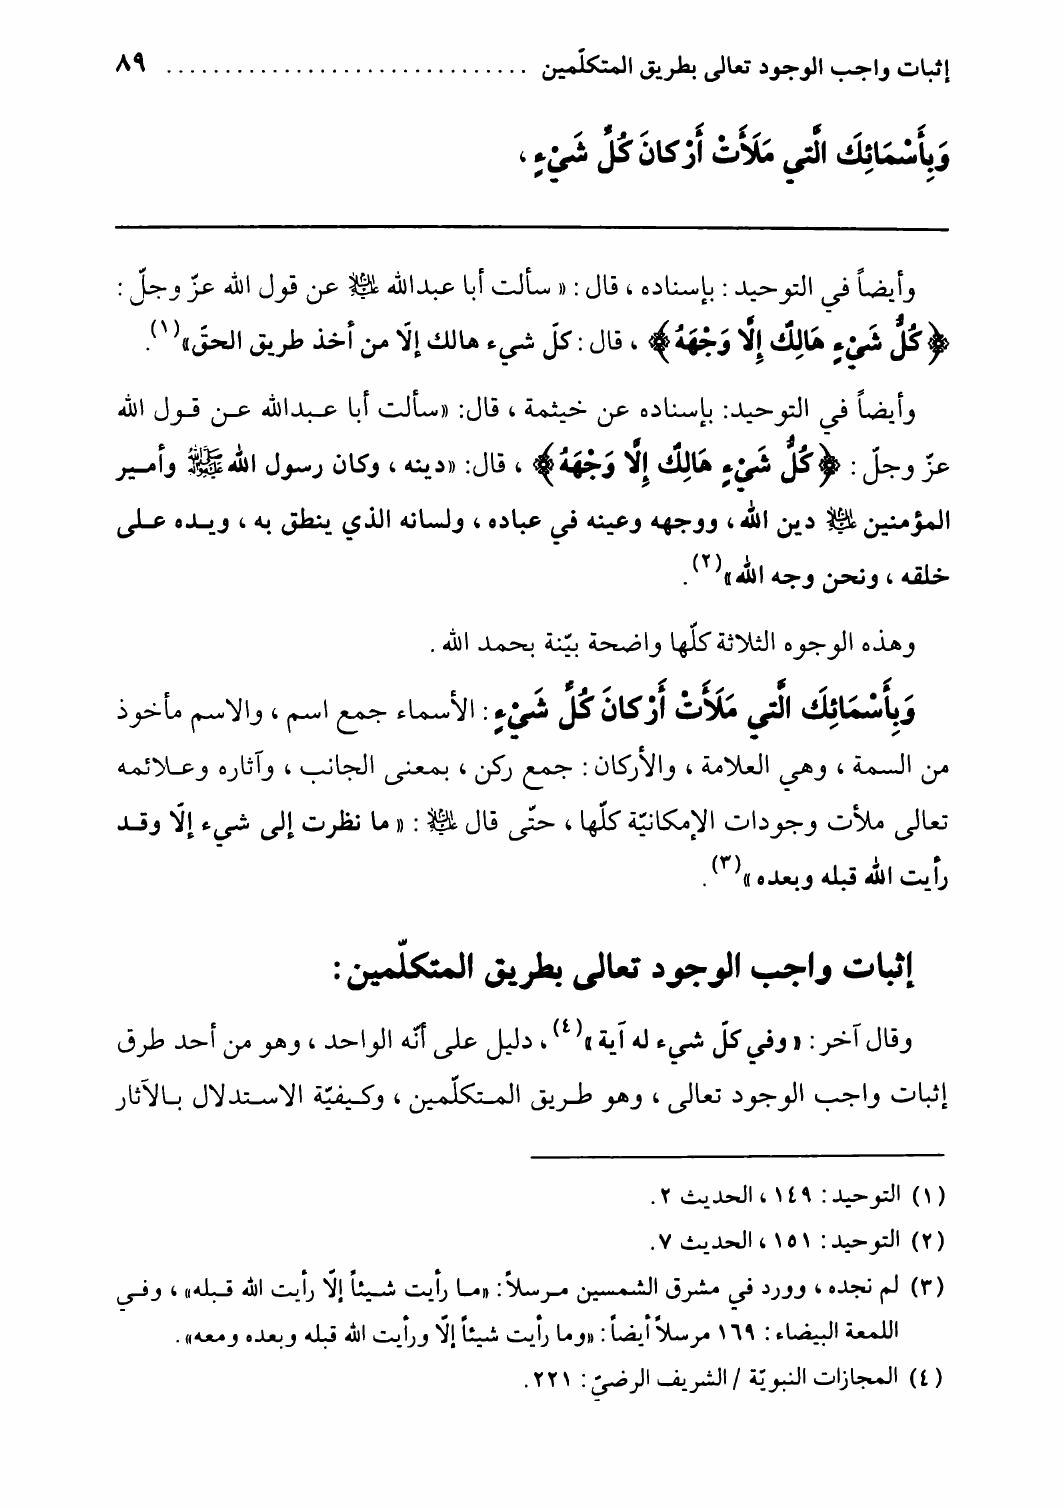 إثبات واجب الوجود تعالى بطريق المتكلّمين ............................... ٨٩
وَبِأَسْمَائِكَ الَّتي مَلَأَتْ أَرْكانَ كُلِّ شَيْءٍ ،
وأيضاً في التوحيد : بإسناده ، قال : « سألت أبا عبدالله ﷷ عن قول الله عزّ وجلّ :
﴿ كُلُّ شَيْءٍ هَالِكٌ إِلَّا وَجْهَهُ ﴾ ، قال : كلّ شيء هالك إلّا من أخذ طريق الحقّ»(١).
وأيضاً في التوحيد: بإسناده عن خيثمة ، قال: «سألت أبا عبدالله عن قول الله
عزّ وجلّ : ﴿ كُلُّ شَيْءٍ هَالِكٌ إِلَّا وَجْهَهُ ﴾ ، قال: «دينه ، وكان رسول الله ﷺ وأمير
المؤمنين ﷷ دين الله ، ووجهه وعينه في عباده ، ولسانه الذي ينطق به ، ويده على
خلقه ، ونحن وجه الله »(٢).
وهذه الوجوه الثلاثة كلّها واضحة بيّنة بحمد الله .
وَبِأَسْمَائِكَ الَّتي مَلَأَتْ أَرْكانَ كُلِّ شَيْءٍ : الأسماء جمع اسم ، والاسم مأخوذ
من السمة ، وهي العلامة ، والأركان : جمع ركن ، بمعنى الجانب ، وآثاره وعلائمه
تعالى ملأت وجودات الإمكانيّة كلّها ، حتّى قال ﷷ : « ما نظرت إلى شيء إلّا وقد
رأيت الله قبله وبعده »(٣).
إثبات واجب الوجود تعالى بطريق المتكلّمين :
وقال آخر : « وفي كلّ شيء له آية »(٤)، دليل على أنّه الواحد ، وهو من أحد طرق
إثبات واجب الوجود تعالى ، وهو طريق المتكلّمين ، وكيفيّة الاستدلال بالآثار
(١) التوحيد : ١٤٩ ، الحديث ٢ .
(٢) التوحيد : ١٥١ ، الحديث ٧ .
(٣) لم نجده ، وورد في مشرق الشمسين مرسلاً : «ما رأيت شيئاً إلّا رأيت الله قبله» ، وفي
اللمعة البيضاء : ١٦٩ مرسلاً أيضاً : «وما رأيت شيئاً إلّا ورأيت الله قبله وبعده ومعه» .
(٤) المجازات النبويّة / الشريف الرضيّ : ٢٢١ .